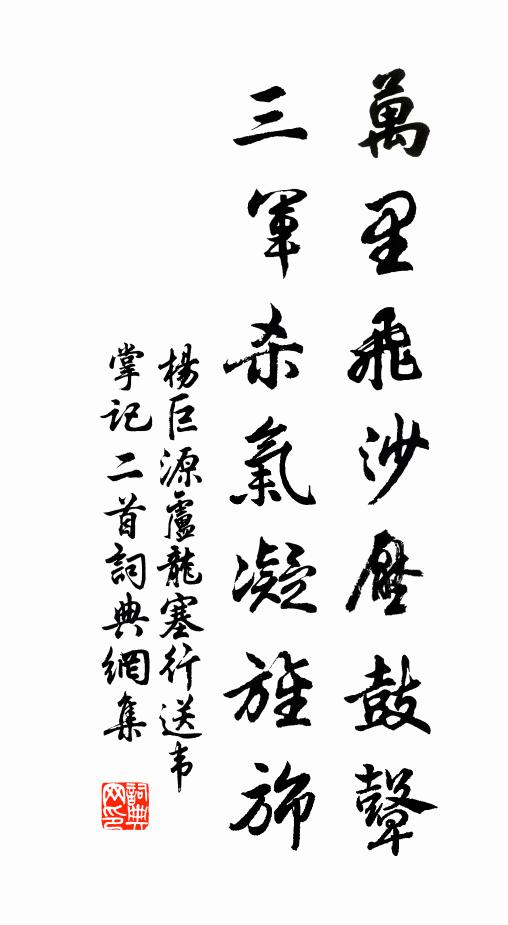 萬里飛沙壓鼓鼙
三軍杀氣凝旌旆
楊巨源盧龍塞行送韦
掌記二首詞典網集
詞典
网印